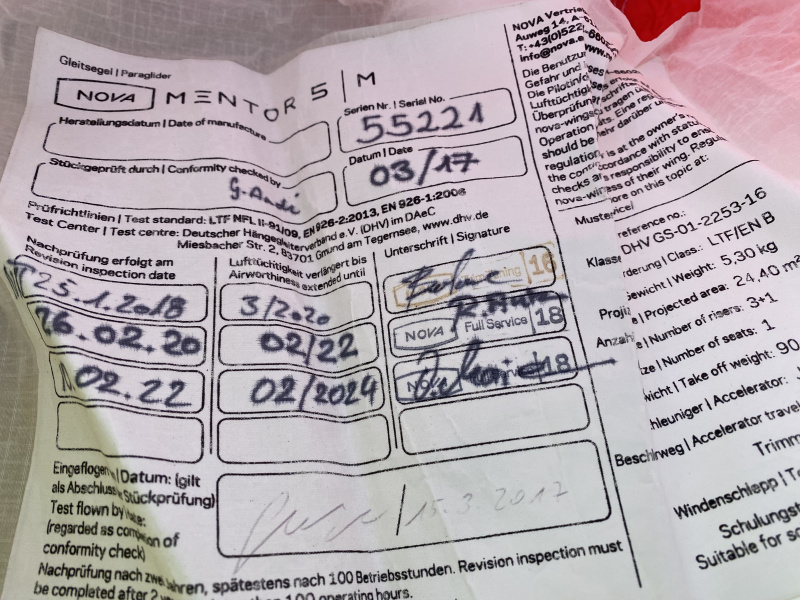 Gleitsegel | Paraglider
NOVA MENTOR 5 | M
Herstellungsdatum | Date of manufacture
Serien Nr. | Serial No.
55221
Stückgeprüft durch | Conformity checked by
Datum | Date
03/17
Prüfrichtlinien | Test standard: LTF NFL II-91/09, EN 926-2:2013, EN 926-1:2006
Test Center | Test centre: Deutscher Hängegleiterverband e.V. (DHV) im DAeC
Miesbacher Str. 2, 83701 Gmund am Tegernsee, www.dhv.de
Nachprüfung erfolgt am
Revision inspection date
Luftüchtigkeit verlängert bis
Airworthiness extended until
Unterschrift | Signature
25.1.2018
3/2020
16
26.02.20
02/22
NOVA Full Service 18
02.22
02/2024
NOVA 18
Eingeflogen Datum: (gilt
als Abschluss Stückprüfung)
Test flown by
(regarded as of
conformity check)
15.3.2017
Nachprüfung nach spätestens nach 100 Betriebsstunden. Revision inspection must
be completed after 2 100 operating hours.
NOVA
Auweg 14,
info@nova.e
Die Benutzu
Gefahr und
Die Pilotin
Lufttüchtig
Überprüfun
nova-wings
Operation
should be
regulation
checks
nova-wi
more on this topic at:
reference no.:
DHV GS-01-2253-16
Klasse Class.: LTF/EN B
Gewicht | Weight: 5,30 kg
Projected area: 24,40 m
Anzah Number of risers: 3+1
Number of seats: 1
Take off weight: 90
Accelerator:
Accelerator travel
Trimm
Windenschlepp |
Schulungst
Suitable for